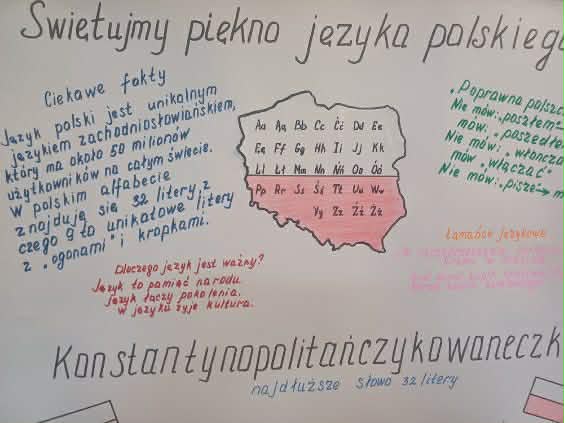 Świętujmy piękno języka polskiego
Ciekawe fakty
Język polski jest unikalnym
językiem zachodniosłowiańskiem,
który ma około 50 milionów
użytkowników na całym świecie.
W polskim alfabecie
znajdują się 32 litery, z
czego 9 to unikatowe litery
z „ogonami" i kropkami.
Aa Ąą Bb Cc Ćć Dd Ee
Ęę Ff Gg Hh Ii Jj Kk
Ll Łł Mm Nn Ńń Oo Óó
Pp Rr Ss Śś Tt Uu Ww
Yy Zz Źź Żż
Dlaczego język jest ważny?
Język to pamięć narodu.
Język łączy pokolenia.
W języku żyje kultura.
„Poprawna polszcz
Nie mów: „poszłem"
mów: „poszedł
Nie mów: „włoncza
mów „włączać"
Nie mów: „pisze" → m
Łamańce językowe
Konstantynopolitańczykowaneczk
najdłuższe słowo 32 litery